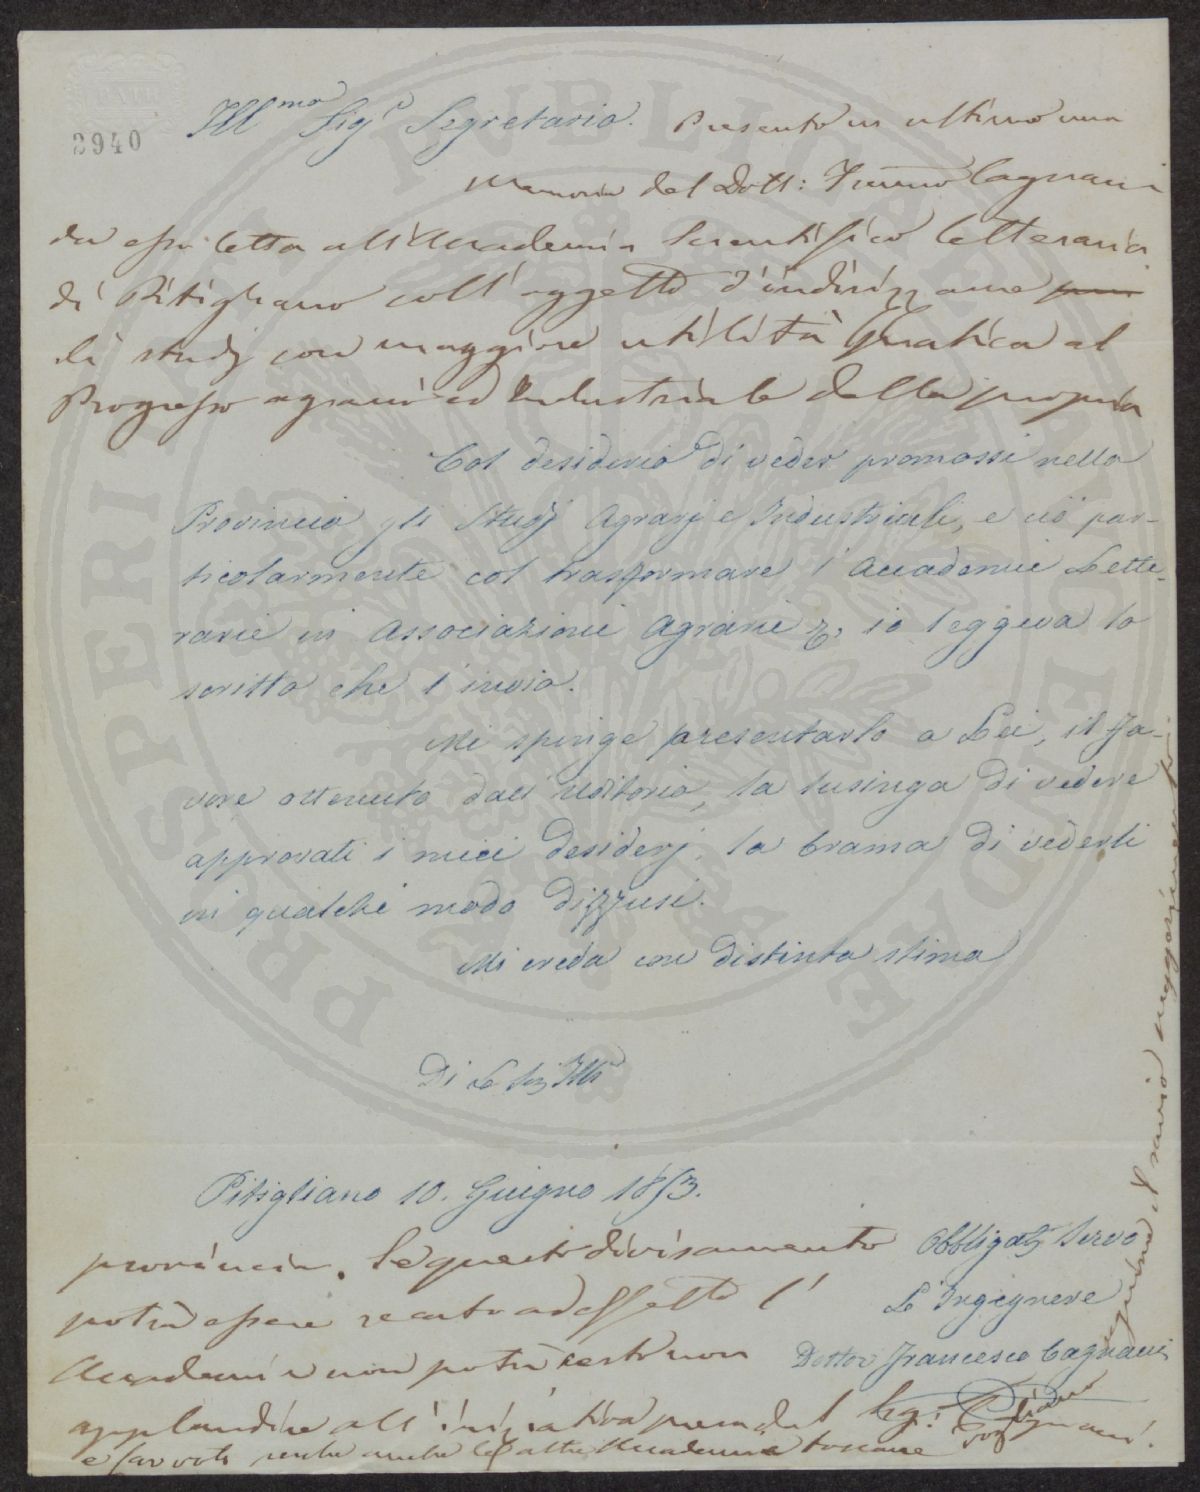 2940
Ill.mo Sig.r Segretario. Presento in ultimo una
Memoria del Dott: Cagnacci
da esso letta all'Accademia Scientifico Letteraria
di Pitigliano coll'oggetto d'indirizzarne
li studj con maggiore utilità pratica al
Progresso agrario ed Industriale della propria
Col desiderio di veder promossi nella
Provincia gli Studj Agrarj e Industriali, e ciò par-
ticolarmente col trasformare l'Accademie Lette-
rarie in Associazioni Agrarie &, io leggeva lo
scritto che l'invio.
Mi spinge presentarlo a Lei, il fa-
vore ottenuto dall'uditorio, la lusinga di vedere
approvati i miei desiderj, la brama di vederli
in qualche modo diffusi.
Mi creda con distinta stima
Di Lei Sig Ill
Pitigliano 10. Giugno 1853.
Obbligat Servo
L'Ingegnere
Dottor Francesco Cagnacci
provincia. Se questo divisamento
potrà essere recato ad effetto l'
Accademia non potrà certo non
applaudire all'iniziativa presa dal Sig: Cagnacci.
e far voti perché anche le altre Accademie toscane vogliano
seguirne il savio suggerimento.
PROSPERITATI PUBLICAE AUGENDAE